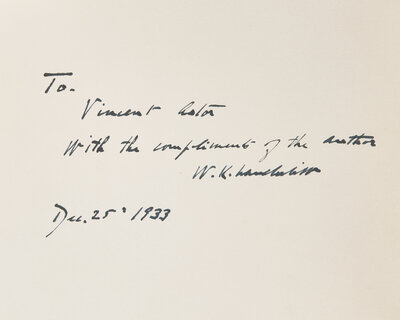 To.
Vincent Astor
With the compliments of the author
W. K. Vanderbilt
Dec. 25' 1933